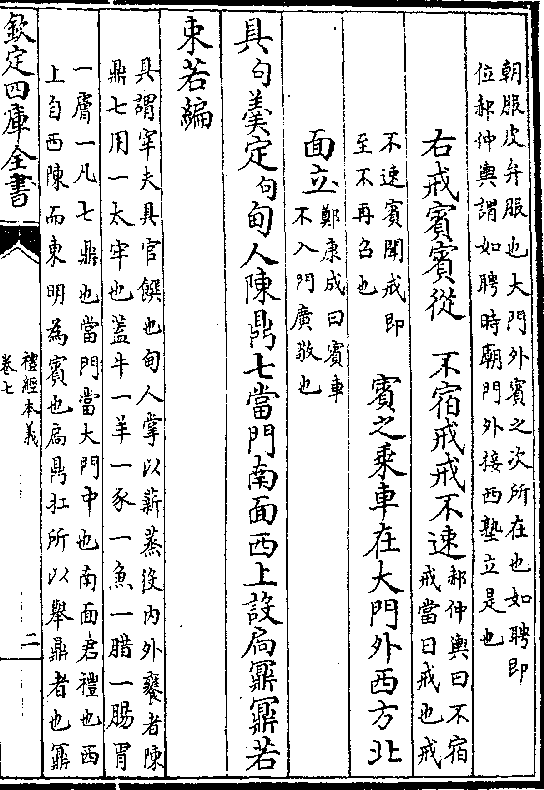 朝服皮弁服也大門外賓之次所在也如聘即
位郝仲輿謂如聘時廟門外接西塾立是也
右戒賓賓從　不宿戒戒不速郝仲輿曰不宿
戒當日戒也戒
不速賓聞戒即
至不再召也　賓之乘車在大門外西方北
面立鄭康成曰賓車
不入門廣敬也
具句羹定句甸人陳鼎七當門南面西上設扃鼏鼏若
束若編
具謂宰夫具官饌也甸人掌以薪蒸役内外饔者陳
鼎七用一太牢也葢牛一羊一豕一魚一腊一腸胃
一膚一凡七鼎也當門當大門中也南面君禮也西
上自西陳而東明為賓也扃鼎扛所以舉鼎者也鼏
欽定四庫全書
禮經本義
卷七
二